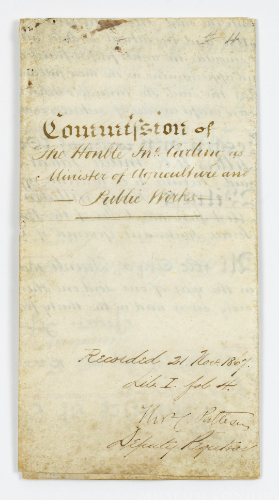 # 4
Commission of
The Honble Jno. Carling as
Minister of Agriculture and
— Public Works —
Recorded 21 Nov. 1867.
Lib. I. fol 4.
Deputy Registrar